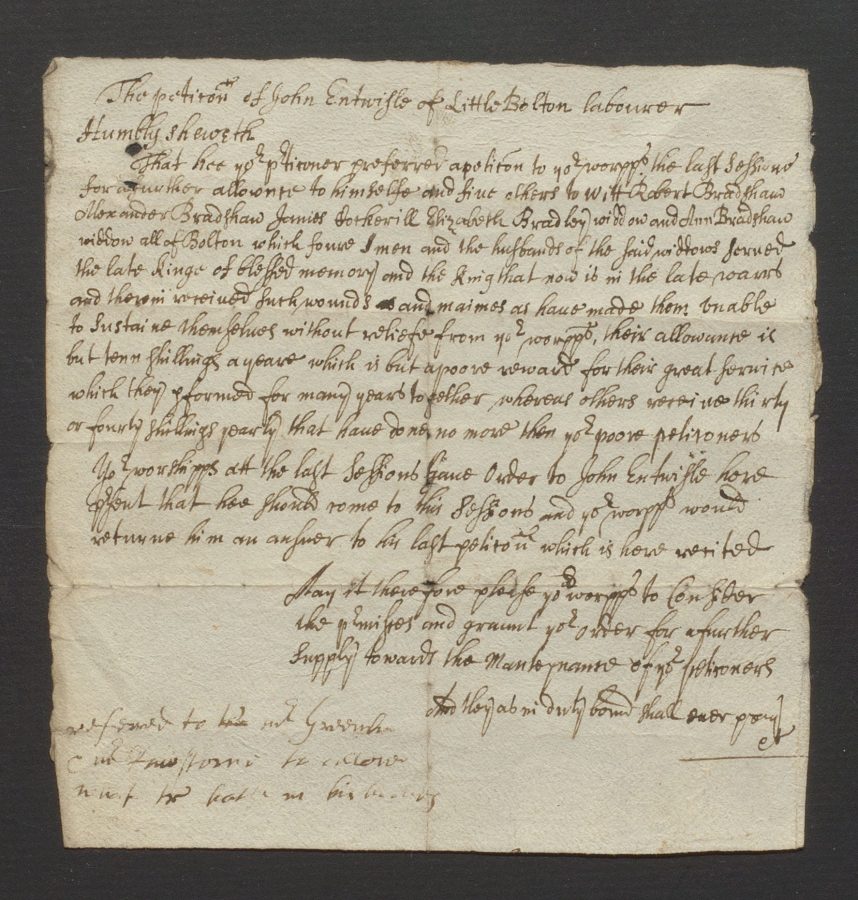 The peticon of John Entwisle of Little Bolton labourer
Humbly sheweth
That hee yor pticoner preferred a peticon to yor worpps the last Sessions
for a further allownce to himselfe and five others to witt Robert Bradshaw
Alexander Bradshaw James Cockerill Elizabeth Bradley widdow and Ann Bradshaw
widdow all of Bolton which foure men and the husbands of the said widdows served
the late Kinge of blessed memory and the King that now is in the late warrs
and therein received such wounds and maimes as have made them unable
to sustaine themselves without reliefe from yor worpps, their allowance is
but tenn shillings a yeare which is but a poore reward for their great service
which they pformed for many years together whereas others receive thirty
or fourty shillings yearly that have done no more then yor poore peticoners
Yor worshipps att the last Sessions gave Order to John Entwisle here
psent that hee should come to this Sessions and yor worpps would
returne him an answer to his last peticon which is here recited
May it therefore please yor worpps to Consider
the pmisses and graunt yor Order for a further
supply towards the Mantegnance of yor peticoners
And they as in duty bound shall ever pray
&c
referred to mr Greenha
mr to allow